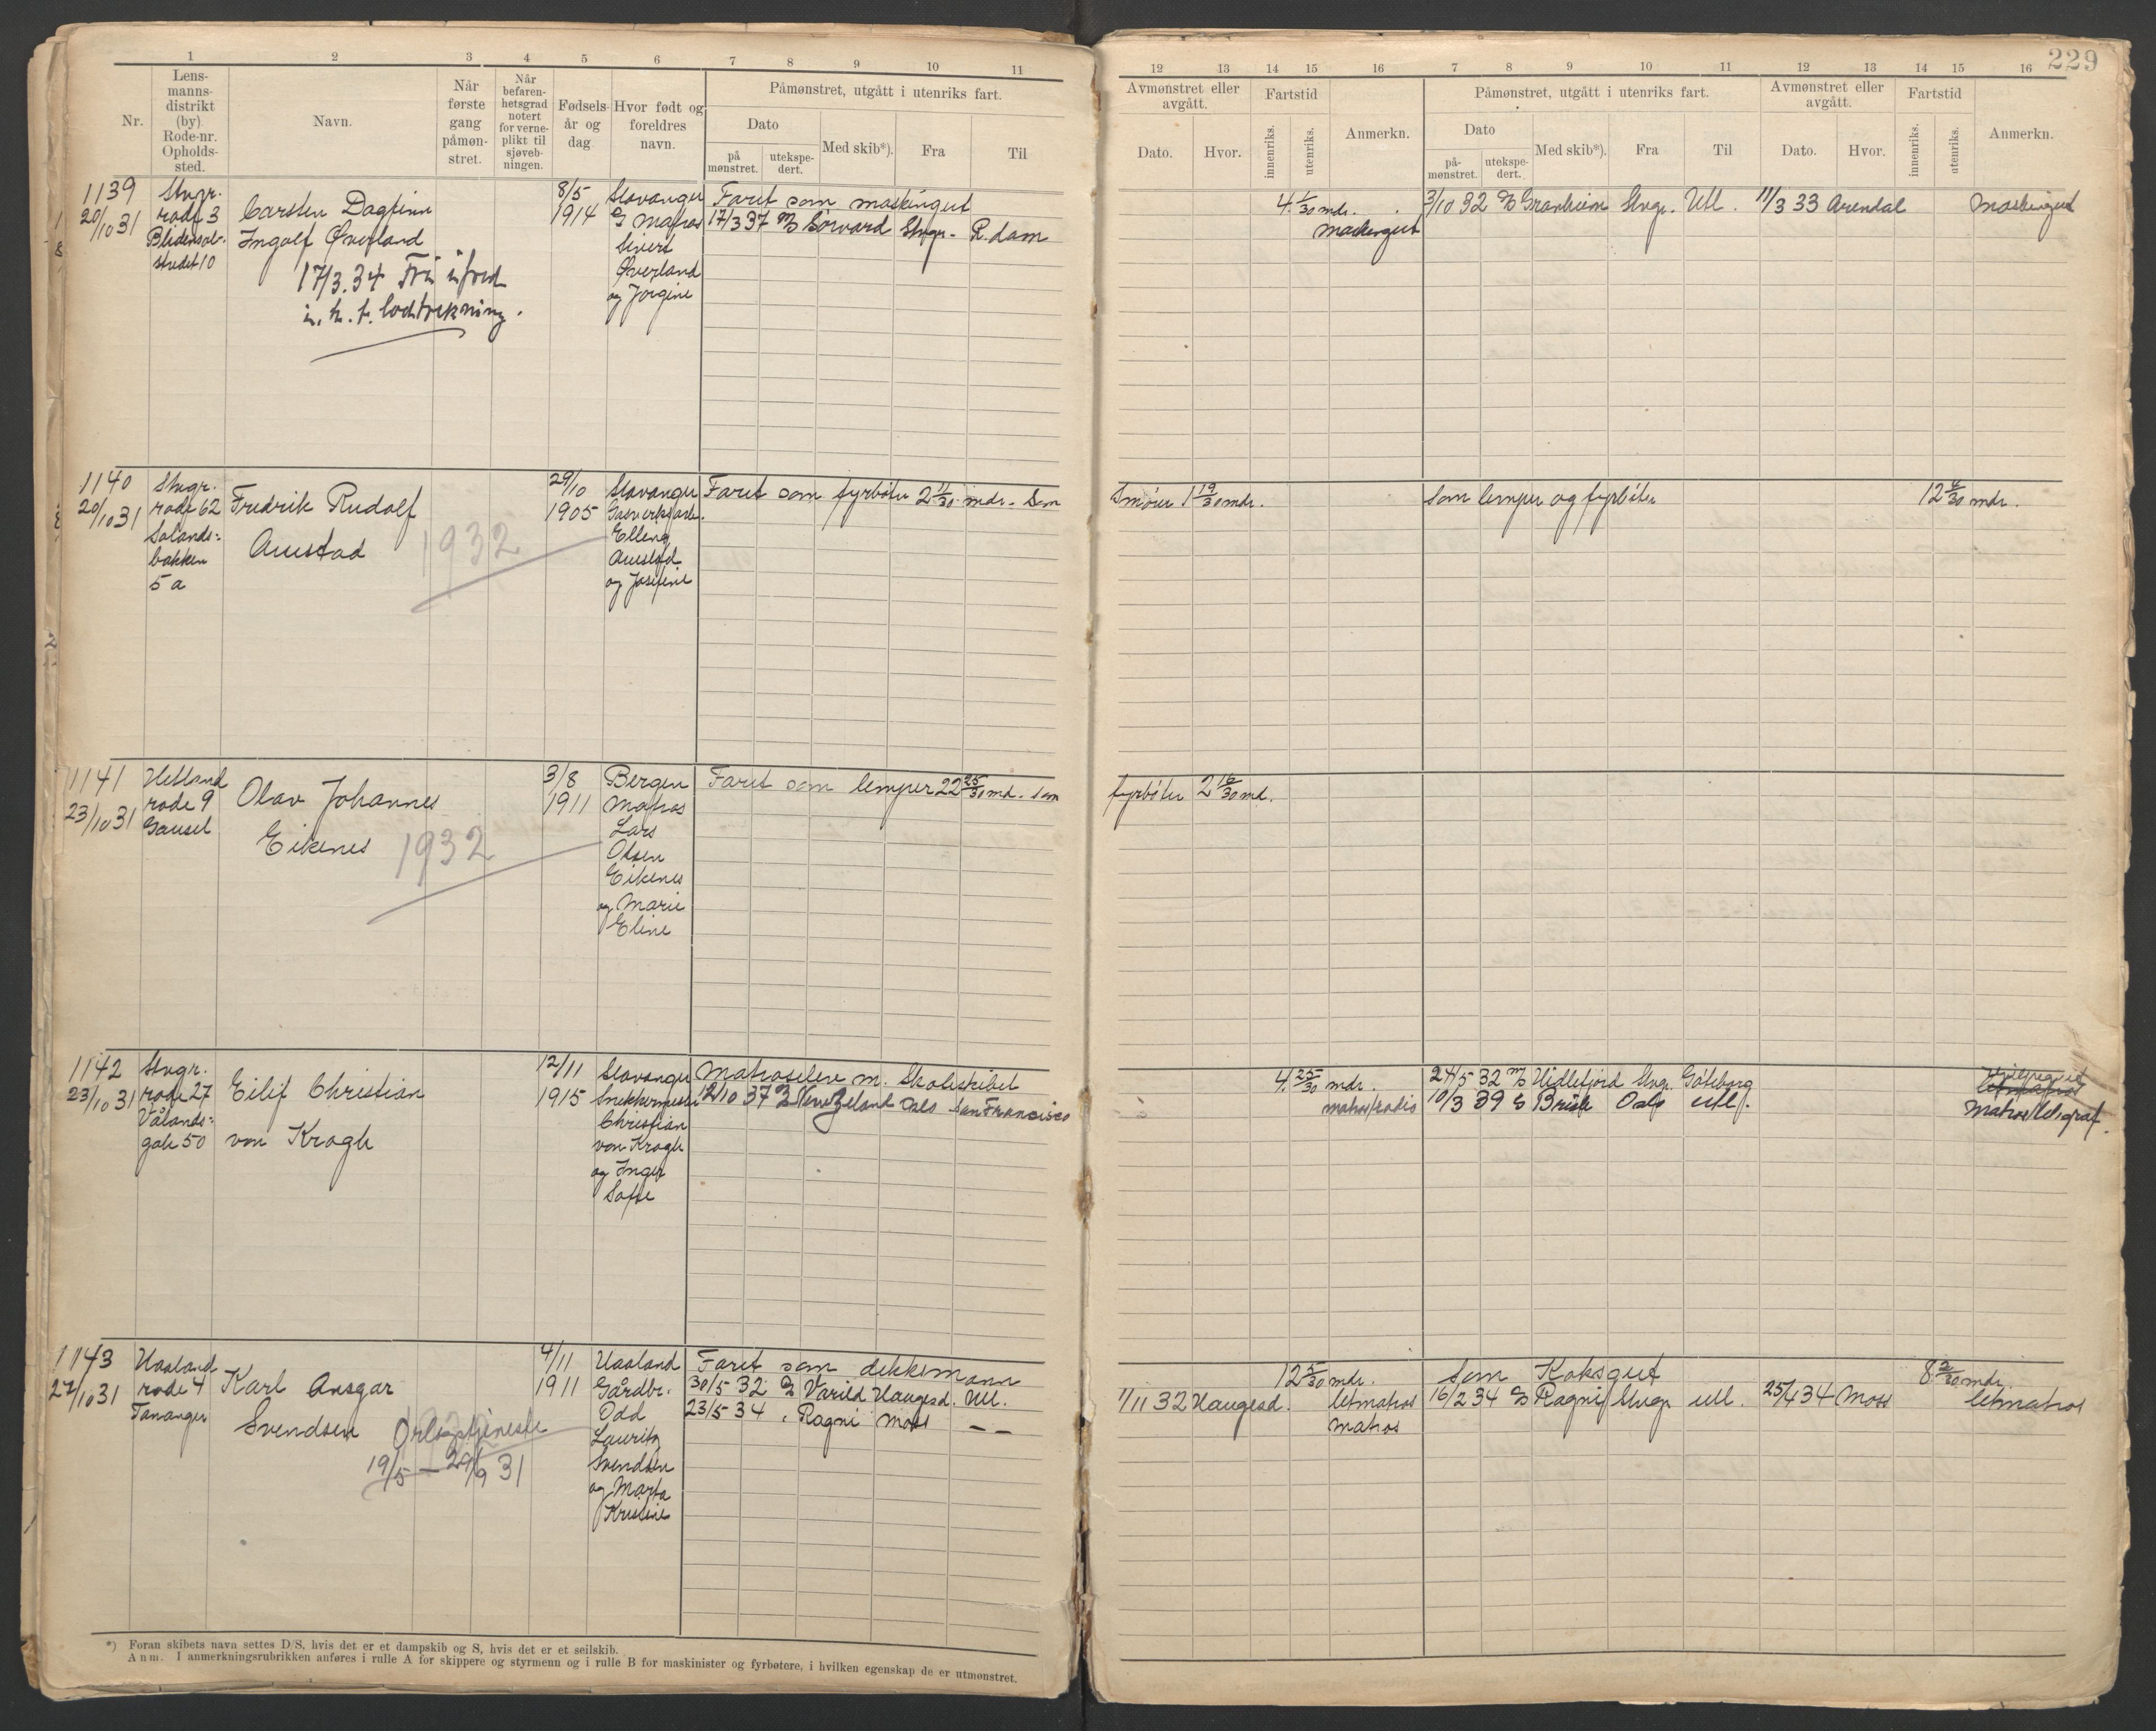 229
1 2 3 4 5 6 7 8 9 10 11
Nr.
Lens-
manns-
distrikt
(by)
Rode-nr.
Opholds-
sted.
Navn.
Når
første
gang
påmøn-
stret.
Når
befaren-
hetsgrad
notert
for verne-
plikt til
sjøveb-
ningen.
Fødsels-
år og
dag
Hvor født og
foreldres
navn.
Påmønstret, utgått i utenriks fart.
Dato
på
mønstret.
utekspe-
dert.
Med skib*).
Fra
Til
12 13 14 15 16 7 8 9 10 11 12 13 14 15 16
Avmønstret eller
avgått.
Dato.
Hvor.
Fartstid
innenriks.
utenriks.
Anmerkn.
Påmønstret, utgått i utenriks fart.
Dato
på-
mønstret.
utekspe-
dert.
Med skib*).
Fra
Til
Avmønstret eller
avgått.
Dato.
Hvor.
Fartstid
innenriks.
utenriks.
Anmerkn.
1139
20/10 31
Stvgr.
rode 3
stredet 10
Carsten Dagfinn
Ingolf Øverland
17/3.34 Fri i fred
i. h. t. lodtrekning.
8/5
1914
Stavanger
Matros
Sivert
Øverland
og Jørgine
Faret som maskingut
17/3 37 M/S Sørvard Stvgr. R.dam
4 1/30 mdr.
Maskingut
3/10 32 Granheim Stvgr. Utl. 11/3 33 Arendal Maskingut
1140
20/10 31
Stvgr.
rode 62
Sølands-
bakken
5 a
Fredrik Rudolf
Auestad
1932
29/10
1905
Stavanger
Gasverksarb.
Elling
Auestad
og Josefine
Faret som fyrbøter 2 11/30 mdr. Som
smører 1 19/30 mdr.
Som lemper og fyrbøter 12 6/30 mdr.
1141
23/10 31
Hetland
rode 9
Gausel
Olav Johannes
Eikenes
1932
3/8
1911
Bergen
Matros
Lars
Olsen
Eikenes
og Marie
Eline
Faret som lemper 22 25/30 md. som
fyrbøter 2 16/30 md.
1142
23/10 31
Stvgr.
rode 27
Vålands-
gate 50
Eilif Christian
von Krogh
12/11
1915
Stavanger
Snekkermester
Christian
von Krogh
og Inger
Sofie
Matroselev m. Skoleskibet
12/10 37 Newzeland Oslo San Francisco
4 25/30 mdr.
matros/radio
24/5 32 M/S Hidlefjord Stvgr. Göteborg
10/3 39 S Brisk Oslo utl.
letmatros
Matros/telegraf.
1143
27/10 31
Haaland
rode 4
Tananger
Karl Ansgar
Svendsen
Orlogstjeneste
19/5 — 29/9 31
4/11
1911
Haaland
Gårdbr.
Odd
Lauritz
Svendsen
og Marta
Kristine
Faret som dekksmann
30/5 32 Varild Haugesd. Utl.
23/5 34 Ragni Moss — —
12 5/30 mdr.
1/11 32 Haugesd. letmatros
Matros
Som Koksgut 8 2/30 mdr.
16/2 34 Ragni Stvgr. utl. 25/4 34 Moss letmatros
*) Foran skibets navn settes D/S, hvis det er et dampskib og S, hvis det er et seilskib.
Anm. I anmerkningsrubrikken anføres i rulle A for skippere og styrmenn og i rulle B for maskinister og fyrbøtere, i hvilken egenskap de er utmønstret.